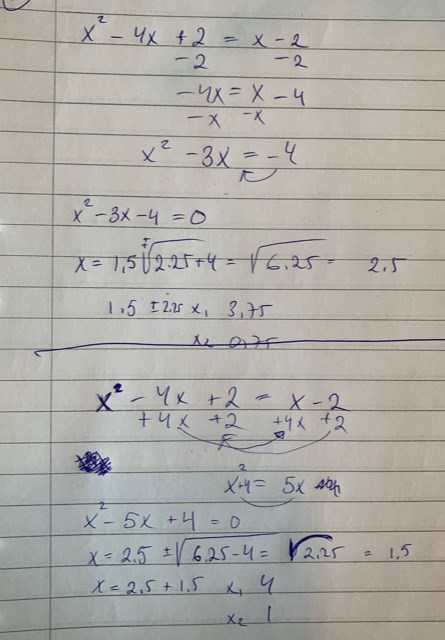 x² - 4x + 2 = x - 2
-2 -2
-4x = x - 4
-x -x
x² - 3x = -4
x² - 3x - 4 = 0
x = 1,5 ± √2.25+4 = √6.25 = 2.5
1.5 ± 2.25 x₁ 3,75
x₂ 0,75
x² - 4x + 2 = x - 2
+4x +2 +4x +2
x² + 4 = 5x
x² - 5x + 4 = 0
x = 2.5 ± √6.25-4 = √2.25 = 1.5
x = 2.5 + 1.5 x₁ 4
x₂ 1